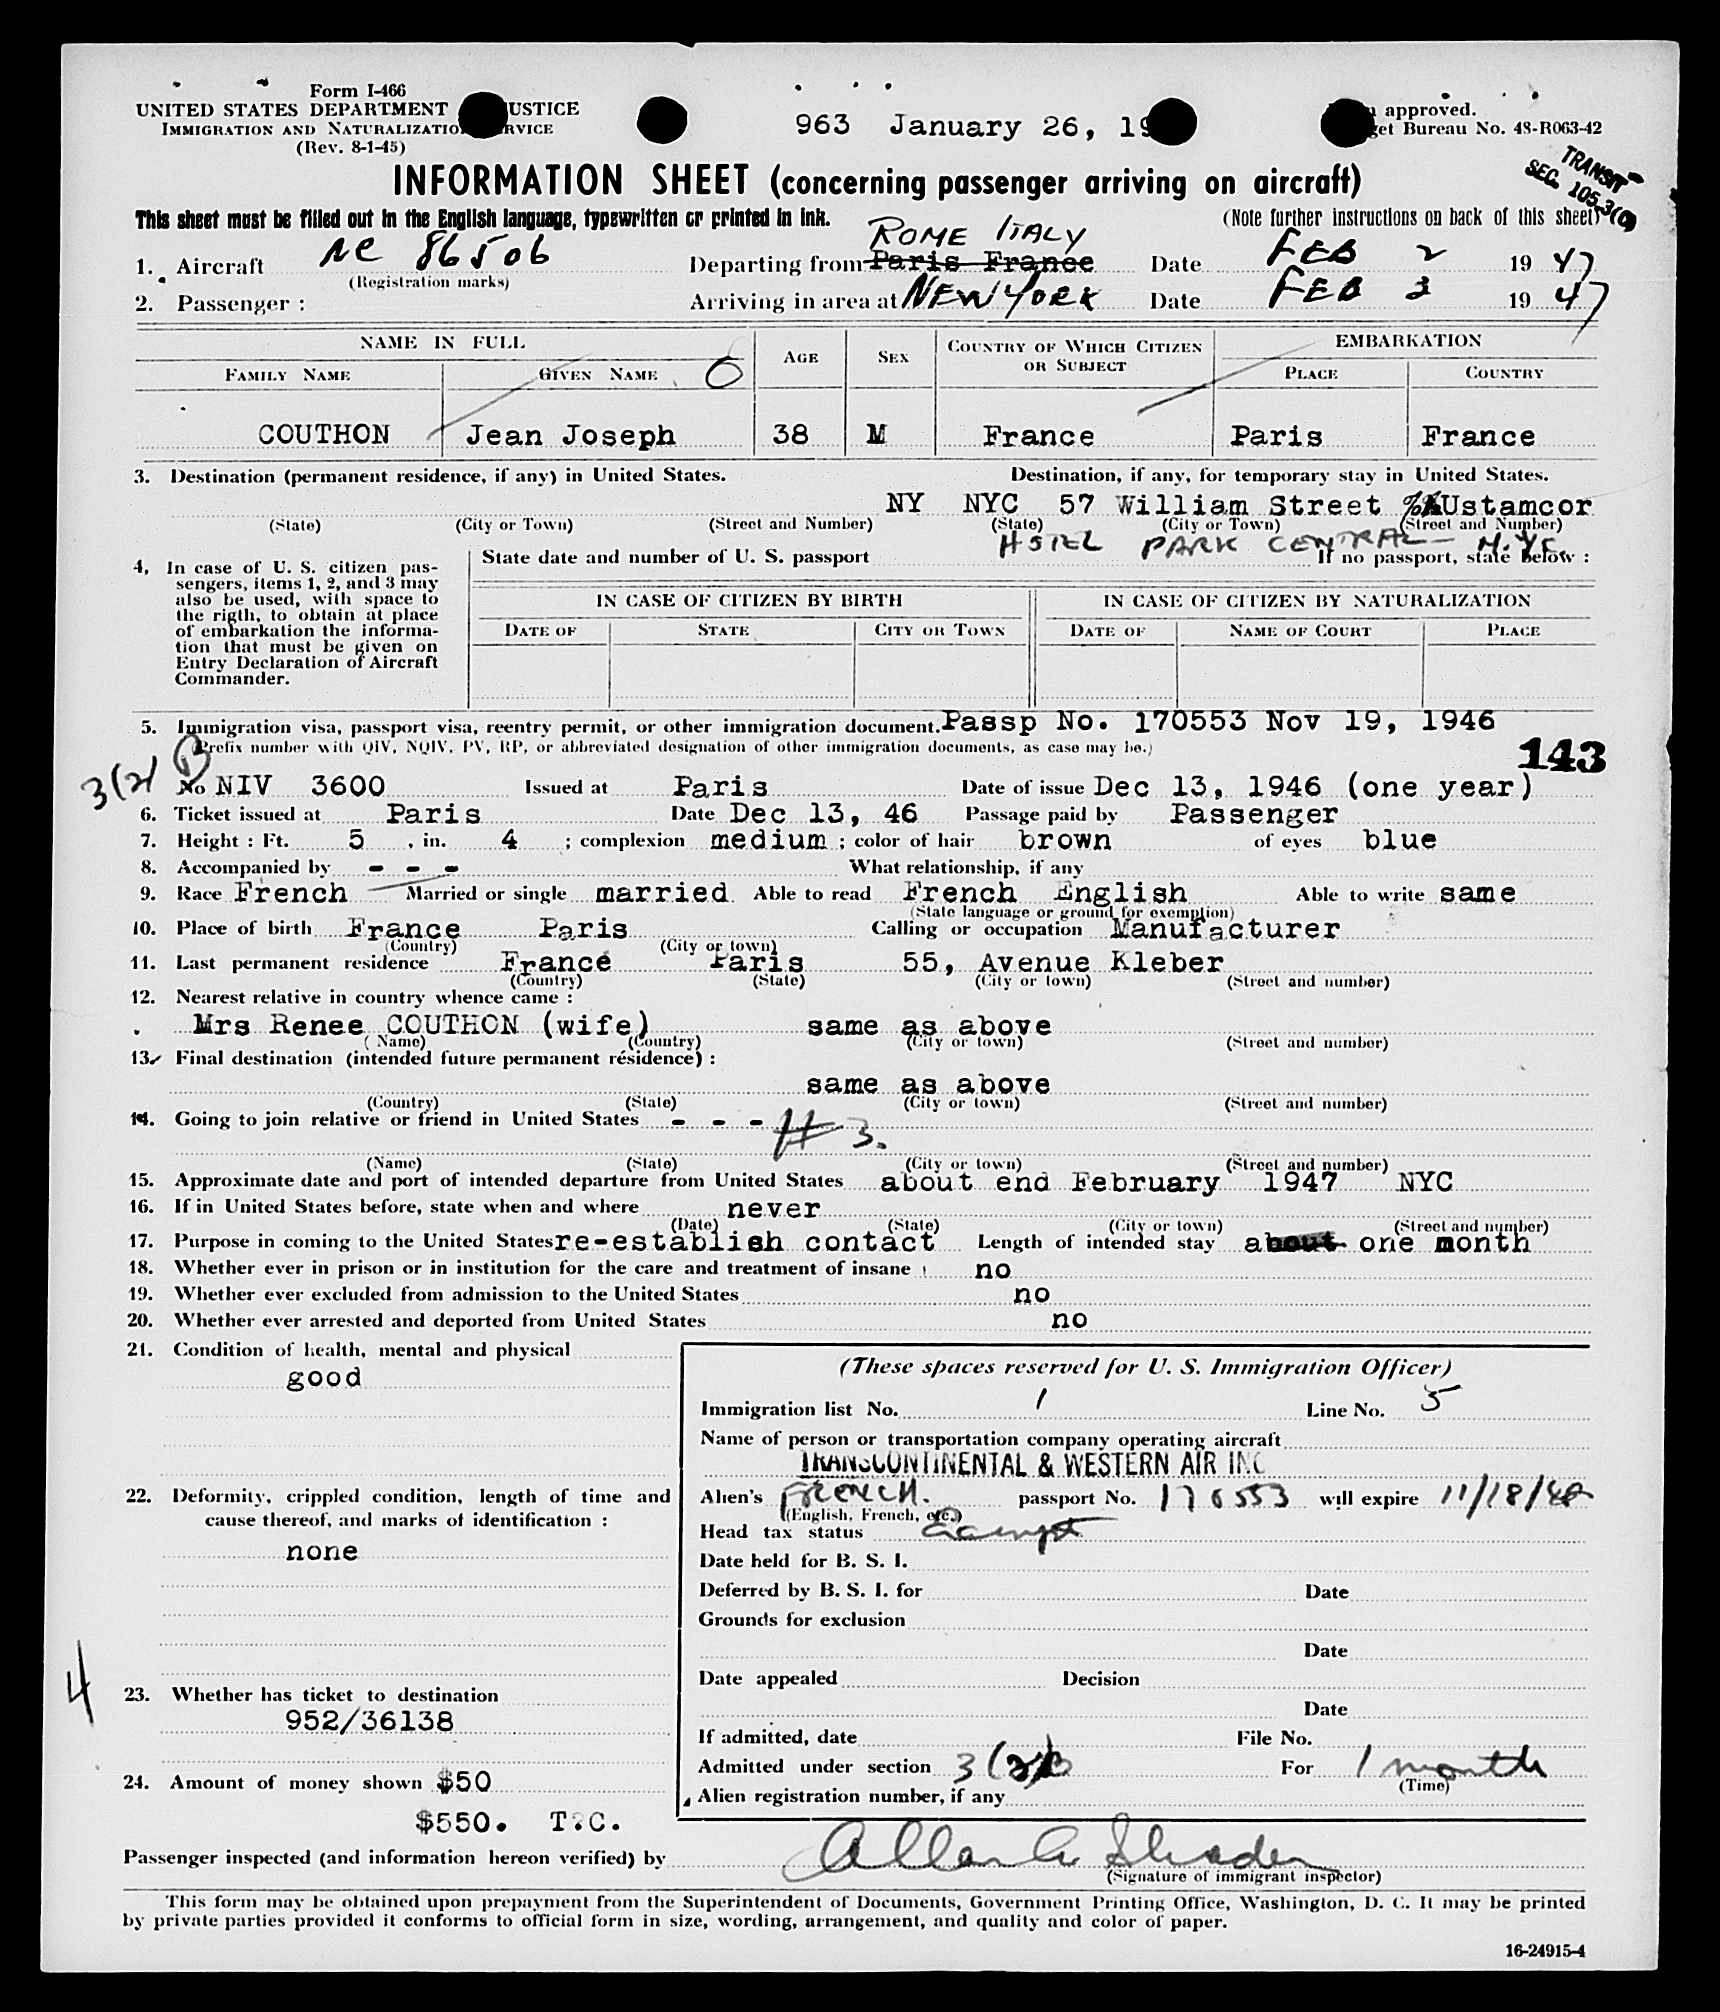 Form I-466
UNITED STATES DEPARTMENT USTICE
IMMIGRATION AND NATURALIZATIO RVICE
(Rev. 8-1-45)
963 January 26, 19
approved.
et Bureau No. 43-R063-42
TRANSIT
SEC. 105.3(a)
INFORMATION SHEET (concerning passenger arriving on aircraft)
This sheet must be filled out in the English language, typewritten or printed in ink. (Note further instructions on back of this sheet)
ROME ITALY
1. Aircraft NC 86506 Departing from Paris France Date FEB 2 19 47
(Registration marks)
2. Passenger : Arriving in area at NEW YORK Date FEB 3 19 47
NAME IN FULL AGE SEX COUNTRY OF WHICH CITIZEN OR SUBJECT EMBARKATION
FAMILY NAME GIVEN NAME PLACE COUNTRY
COUTHON Jean Joseph 38 M France Paris France
3. Destination (permanent residence, if any) in United States. Destination, if any, for temporary stay in United States.
NY NYC 57 William Street % Ustamcor
(State) (City or Town) (Street and Number) (State) (City or Town) (Street and Number)
HOTEL PARK CENTRAL - N.Y.C.
4. In case of U. S. citizen pas-
sengers, items 1, 2, and 3 may
also be used, with space to
the rigth, to obtain at place
of embarkation the informa-
tion that must be given on
Entry Declaration of Aircraft
Commander.
State date and number of U. S. passport If no passport, state below :
IN CASE OF CITIZEN BY BIRTH IN CASE OF CITIZEN BY NATURALIZATION
DATE OF STATE CITY OR TOWN DATE OF NAME OF COURT PLACE
5. Immigration visa, passport visa, reentry permit, or other immigration document. Passp No. 170553 Nov 19, 1946
(Prefix number with QIV, NQIV, PV, RP, or abbreviated designation of other immigration documents, as case may be.)
143
3(2) B
No NIV 3600 Issued at Paris Date of issue Dec 13, 1946 (one year)
6. Ticket issued at Paris Date Dec 13, 46 Passage paid by Passenger
7. Height : Ft. 5 , in. 4 ; complexion medium ; color of hair brown of eyes blue
8. Accompanied by - - - What relationship, if any
9. Race French Married or single married Able to read French English Able to write same
(State language or ground for exemption)
10. Place of birth France Paris Calling or occupation Manufacturer
(Country) (City or town)
11. Last permanent residence France Paris 55, Avenue Kleber
(Country) (State) (City or town) (Street and number)
12. Nearest relative in country whence came :
Mrs Renee COUTHON (wife) same as above
( Name) (Country) (City or town) (Street and number)
13. Final destination (intended future permanent résidence) :
same as above
(Country) (State) (City or town) (Street and number)
14. Going to join relative or friend in United States - - - # 3.
(Name) (State) (City or town) (Street and number)
15. Approximate date and port of intended departure from United States about end February 1947 NYC
16. If in United States before, state when and where never
(Date) (State) (City or town) (Street and number)
17. Purpose in coming to the United States re-establish contact Length of intended stay about one month
18. Whether ever in prison or in institution for the care and treatment of insane no
19. Whether ever excluded from admission to the United States no
20. Whether ever arrested and deported from United States no
21. Condition of health, mental and physical
good
22. Deformity, crippled condition, length of time and
cause thereof, and marks of identification :
none
4
23. Whether has ticket to destination
952/36138
24. Amount of money shown $50
$550. T.C.
(These spaces reserved for U. S. Immigration Officer)
Immigration list No. 1 Line No. 5
Name of person or transportation company operating aircraft
TRANSCONTINENTAL & WESTERN AIR INC
Alien's FRENCH. passport No. 170553 will expire 11/18/48
(English, French, etc.)
Head tax status Exempt
Date held for B. S. I.
Deferred by B. S. I. for Date
Grounds for exclusion
Date
Date appealed Decision
Date
If admitted, date File No.
Admitted under section 3(2)B For 1 month
(Time)
Alien registration number, if any
Passenger inspected (and information hereon verified) by
(Signature of immigrant inspector)
This form may be obtained upon prepayment from the Superintendent of Documents, Government Printing Office, Washington, D. C. It may be printed
by private parties provided it conforms to official form in size, wording, arrangement, and quality and color of paper.
16-24915-4